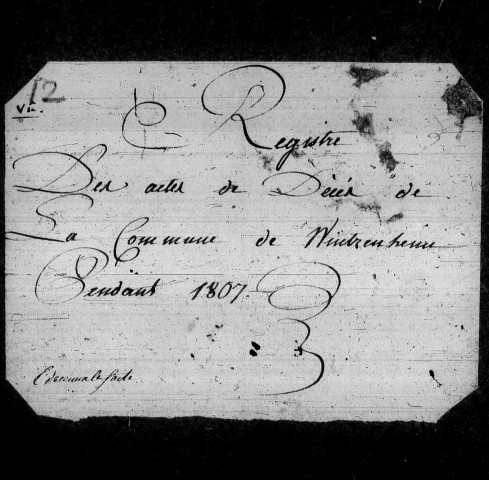 12
Vu.
Registre
Des actes de Décès de
La Commune de Wintzenheim
Pendant 1807.